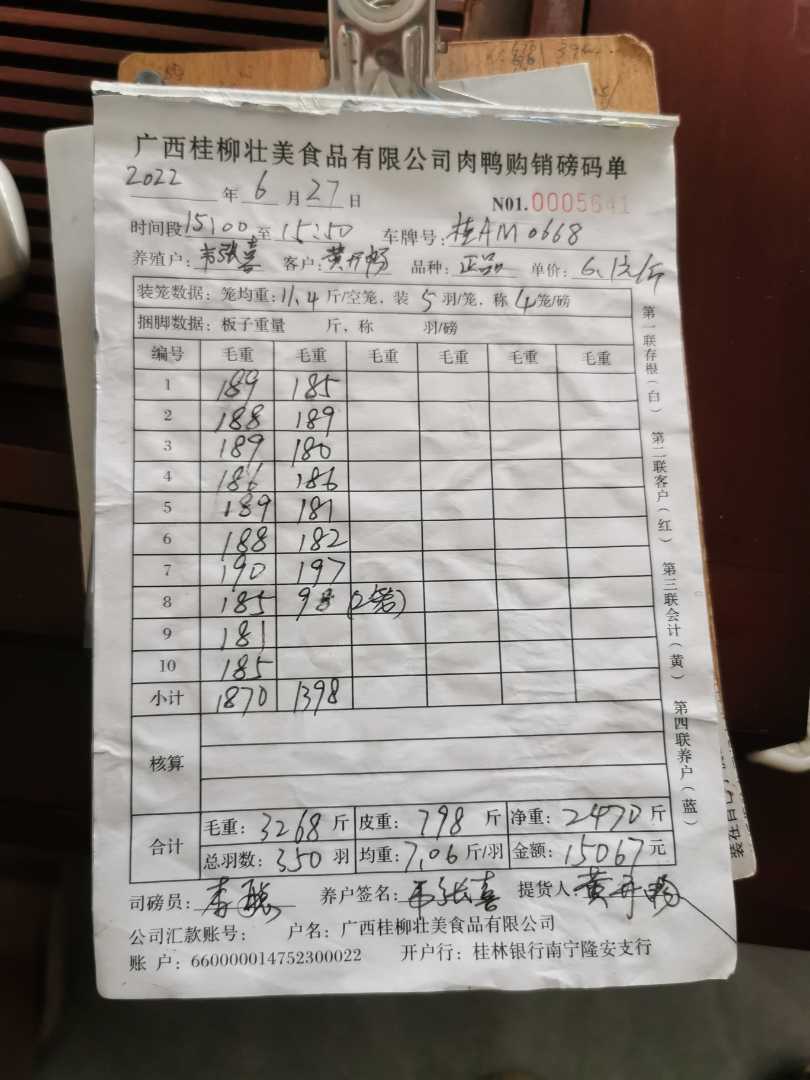 广西桂柳壮美食品有限公司肉鸭购销磅码单
2022 年 6 月 27 日 N01.0005641
时间段 15:00 至 15:50 车牌号: 桂AM0668
养殖户: 韦张喜 客户: 黄开畅 品种: 正品 单价: 6.1元/斤
装笼数据: 笼均重: 11.4 斤/空笼, 装 5 羽/笼, 称 4 笼/磅
捆脚数据: 板子重量 斤, 称 羽/磅
编号 毛重 毛重 毛重 毛重 毛重 毛重
1 189 185
2 188 189
3 189 180
4 186 186
5 189 181
6 188 182
7 190 197
8 185 98 (2笼)
9 181
10 185
小计 1870 1398
核算
合计
毛重: 3268 斤 皮重: 798 斤 净重: 2470 斤
总羽数: 350 羽 均重: 7.06 斤/羽 金额: 15067 元
司磅员: 李 养户签名: 韦张喜 提货人: 黄开畅
公司汇款账号: 户名: 广西桂柳壮美食品有限公司
账 户: 660000014752300022 开户行: 桂林银行南宁隆安支行
第一联存根(白) 第二联客户(红) 第三联会计(黄) 第四联养户(蓝)